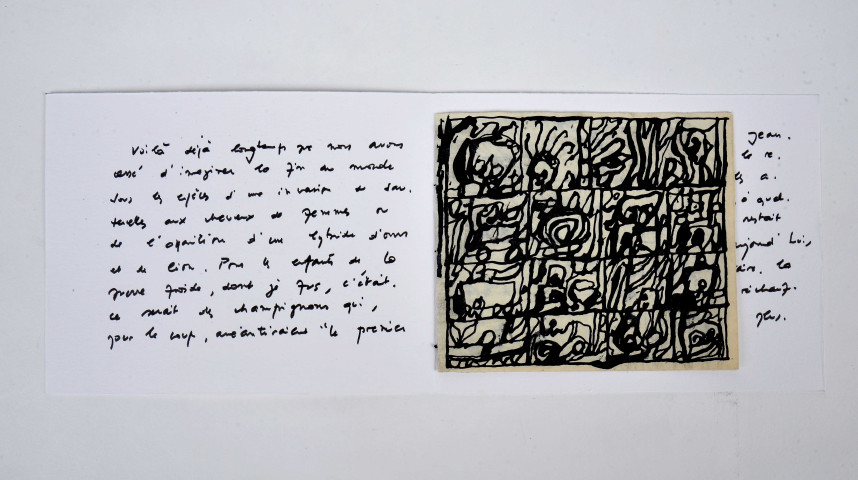 Voilà déjà longtemps que nous avons
cessé d'imaginer la fin du monde
sous les espèces d'une invasion de sau.
terelles aux cheveux de femmes ou
de l'apparition d'un hybride d'ours
et de lion. Pour les enfants de la
guerre froide, dont je fus, c'était.
ce serait des champignons qui,
pour le coup, anéantiraient "le premier
Jean.
le re.
a.
quel.
restait
aujourd'hui,
la
plus.